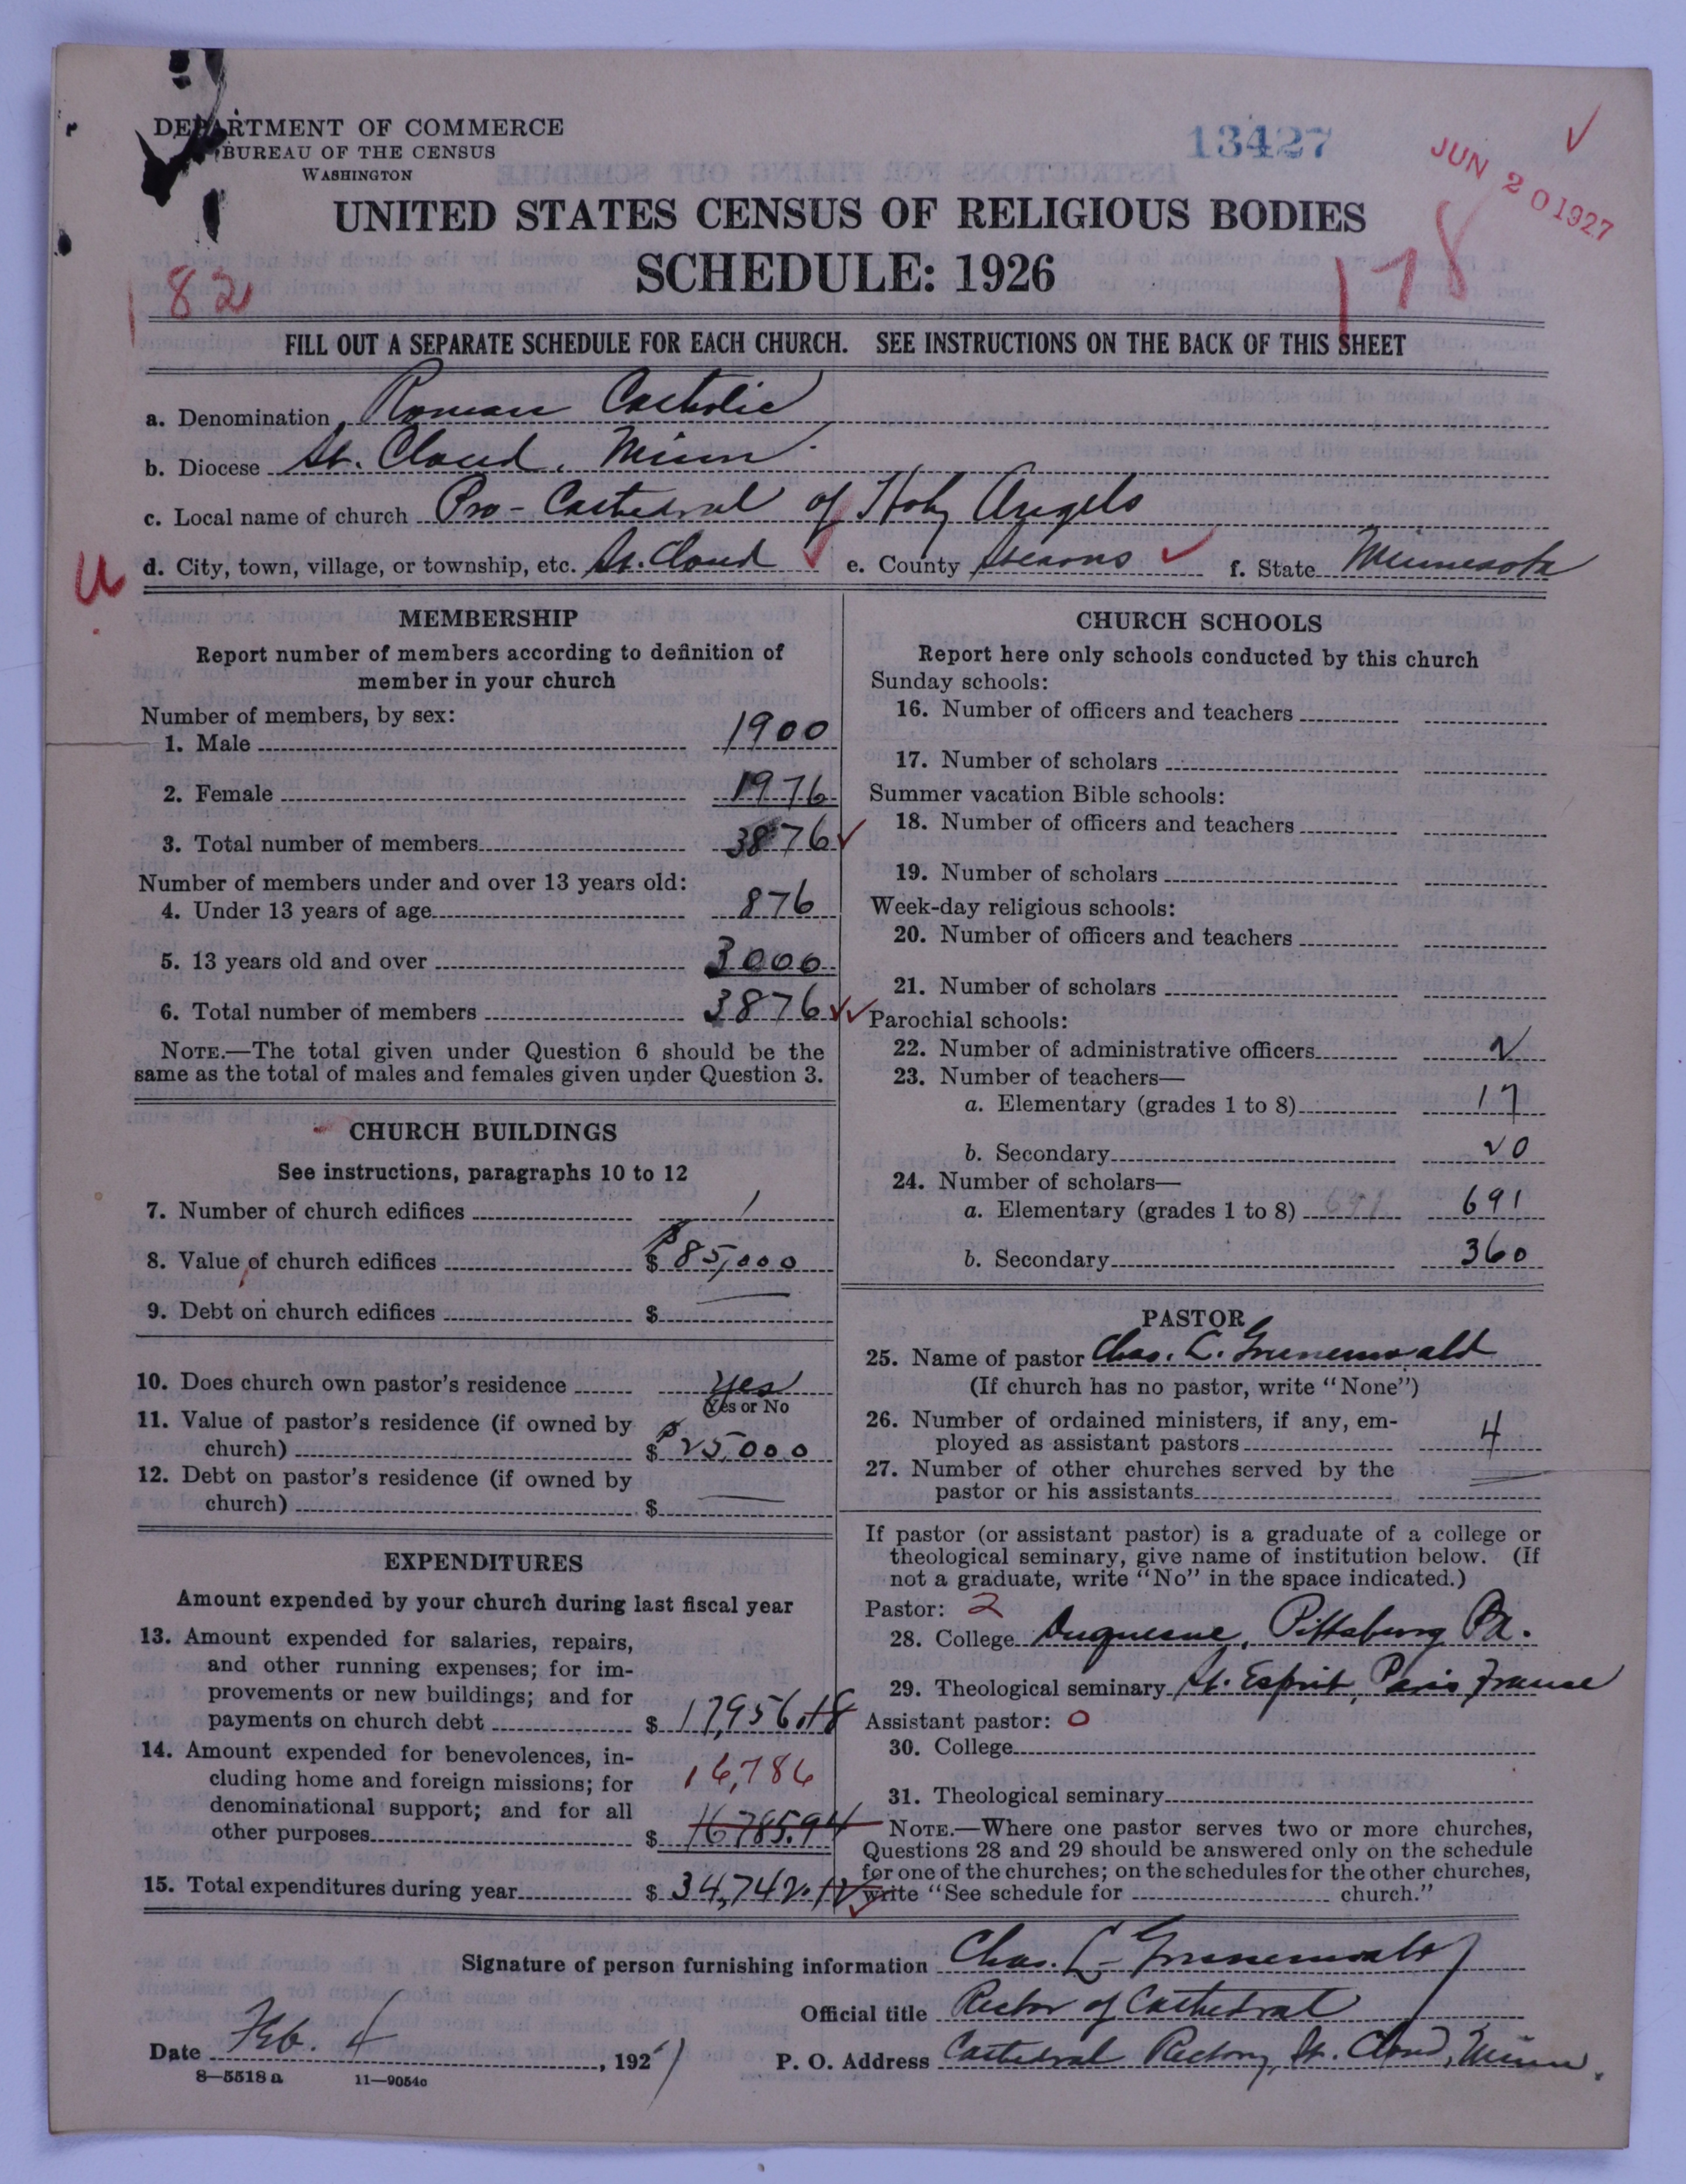 DEPARTMENT OF COMMERCE
BUREAU OF THE CENSUS
WASHINGTON
13427
JUN 20 1927
UNITED STATES CENSUS OF RELIGIOUS BODIES
SCHEDULE: 1926
182
178
FILL OUT A SEPARATE SCHEDULE FOR EACH CHURCH. SEE INSTRUCTIONS ON THE BACK OF THIS SHEET
a. Denomination Roman Catholic
b. Diocese St. Cloud, Minn.
c. Local name of church Pro-Cathedral of Holy Angels
U d. City, town, village, or township, etc. St. Cloud e. County Stearns f. State Minnesota
MEMBERSHIP
Report number of members according to definition of
member in your church
Number of members, by sex:
1. Male 1900
2. Female 1976
3. Total number of members 3876
Number of members under and over 13 years old:
4. Under 13 years of age 876
5. 13 years old and over 3000
6. Total number of members 3876
NOTE.—The total given under Question 6 should be the
same as the total of males and females given under Question 3.
CHURCH BUILDINGS
See instructions, paragraphs 10 to 12
7. Number of church edifices 1
8. Value of church edifices $ 85,000
9. Debt on church edifices $ —
10. Does church own pastor's residence yes
(Yes or No
11. Value of pastor's residence (if owned by
church) $ 25,000
12. Debt on pastor's residence (if owned by
church) $ —
EXPENDITURES
Amount expended by your church during last fiscal year
13. Amount expended for salaries, repairs,
and other running expenses; for im-
provements or new buildings; and for
payments on church debt $ 17,956.18
14. Amount expended for benevolences, in-
cluding home and foreign missions; for 16,786
denominational support; and for all
other purposes $ 16785.94
15. Total expenditures during year $ 34,742.12
CHURCH SCHOOLS
Report here only schools conducted by this church
Sunday schools:
16. Number of officers and teachers
17. Number of scholars
Summer vacation Bible schools:
18. Number of officers and teachers
19. Number of scholars
Week-day religious schools:
20. Number of officers and teachers
21. Number of scholars
Parochial schools:
22. Number of administrative officers 2
23. Number of teachers—
a. Elementary (grades 1 to 8) 17
b. Secondary 20
24. Number of scholars—
a. Elementary (grades 1 to 8) 691 691
b. Secondary 360
PASTOR
25. Name of pastor Chas. L. Grunenwald
(If church has no pastor, write "None")
26. Number of ordained ministers, if any, em-
ployed as assistant pastors 4
27. Number of other churches served by the
pastor or his assistants —
If pastor (or assistant pastor) is a graduate of a college or
theological seminary, give name of institution below. (If
not a graduate, write "No" in the space indicated.)
Pastor: 2
28. College Duquesne, Pittsburg Pa.
29. Theological seminary St. Esprit, Paris France
Assistant pastor: 0
30. College
31. Theological seminary
NOTE.—Where one pastor serves two or more churches,
Questions 28 and 29 should be answered only on the schedule
for one of the churches; on the schedules for the other churches,
write "See schedule for church."
Signature of person furnishing information Chas. L. Grunenwald
Official title Rector of Cathedral
Date Feb. 4, 1927 P. O. Address Cathedral Rectory, St. Cloud, Minn.
8—5518 a 11—9054c